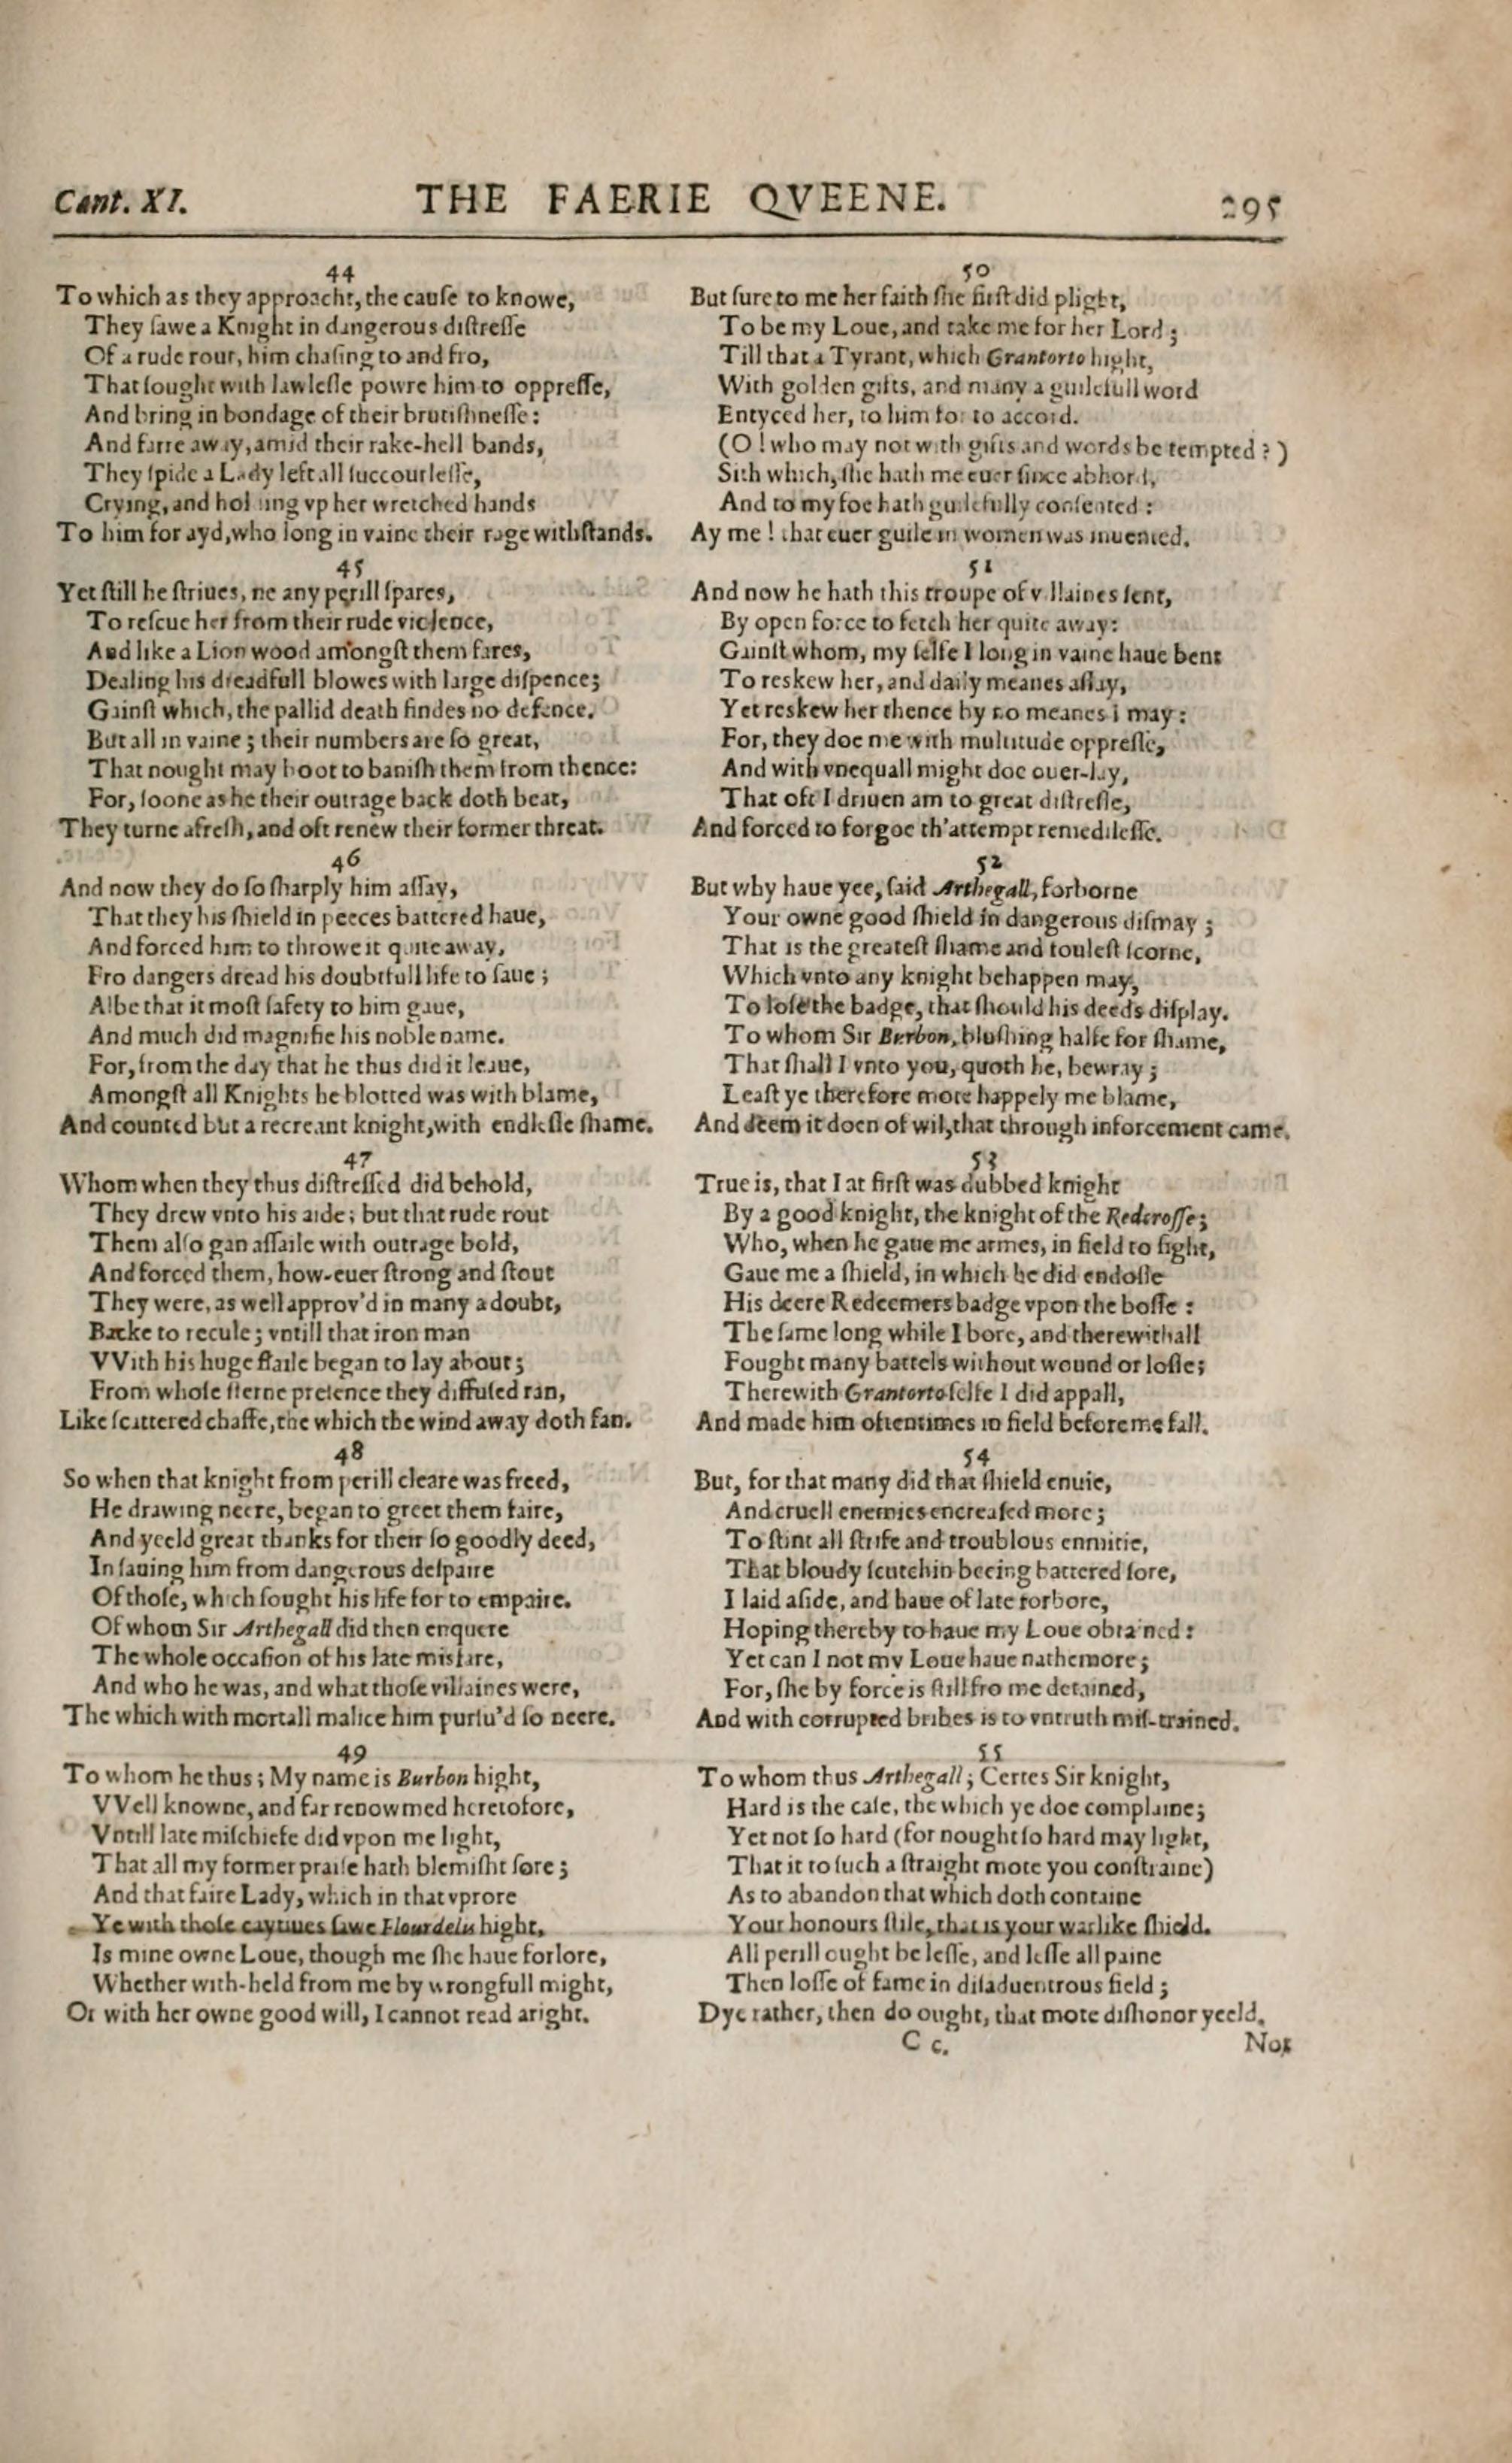 Cant. XI.
THE FAERIE QVEENE.
295
44
To which as they approacht, the cauſe to knowe,
They ſawe a Knight in dangerous diſtreſſe
Of a rude rout, him chaſing to and fro,
That ſought with lawleſſe powre him to oppreſſe,
And bring in bondage of their brutiſhneſſe:
And farre away, amid their rake-hell bands,
They ſpide a Lady left all ſuccourleſſe,
Crying, and holding vp her wretched hands
To him for ayd, who long in vaine their rage withſtands.
45
Yet ſtill he ſtriues, ne any perill ſpares,
To reſcue her from their rude violence,
And like a Lion wood amongſt them fares,
Dealing his dreadfull blowes with large diſpence;
Gainſt which, the pallid death findes no defence.
But all in vaine; their numbers are ſo great,
That nought may boot to baniſh them from thence:
For, ſoone as he their outrage back doth beat,
They turne afreſh, and oft renew their former threat.
46
And now they do ſo ſharply him aſſay,
That they his ſhield in peeces battered haue,
And forced him to throwe it quite away,
Fro dangers dread his doubtfull life to ſaue;
Albe that it moſt ſafety to him gaue,
And much did magnifie his noble name.
For, from the day that he thus did it leaue,
Amongſt all Knights he blotted was with blame,
And counted but a recreant knight, with endleſſe ſhame.
47
Whom when they thus diſtreſſed did behold,
They drew vnto his aide; but that rude rout
Them alſo gan aſſaile with outrage bold,
And forced them, how-euer ſtrong and ſtout
They were, as well approv'd in many a doubt,
Backe to recule; vntill that iron man
VVith his huge flaile began to lay about;
From whoſe ſterne preſence they diffuſed ran,
Like ſcattered chaffe, the which the wind away doth fan.
48
So when that knight from perill cleare was freed,
He drawing neere, began to greet them faire,
And yeeld great thanks for their ſo goodly deed,
In ſauing him from dangerous deſpaire
Of thoſe, which ſought his life for to empaire.
Of whom Sir Arthegall did then enquere
The whole occaſion of his late misfare,
And who he was, and what thoſe villaines were,
The which with mortall malice him purſu'd ſo neere.
49
To whom he thus; My name is Burbon hight,
VVell knowne, and far renowmed heretofore,
Vntill late miſchiefe did vpon me light,
That all my former praiſe hath blemiſht ſore;
And that faire Lady, which in that vprore
Ye with thoſe caytiues ſawe Flourdelis hight,
Is mine owne Loue, though me ſhe haue forlore,
Whether with-held from me by wrongfull might,
Or with her owne good will, I cannot read aright.
50
But ſure to me her faith ſhe firſt did plight,
To be my Loue, and take me for her Lord;
Till that a Tyrant, which Grantorto hight,
With golden gifts, and many a guilefull word
Entyced her, to him for to accord.
(O! who may not with gifts and words be tempted?)
Sith which, ſhe hath me euer ſince abhord,
And to my foe hath guilefully conſented:
Ay me! that euer guile in women was inuented.
51
And now he hath this troupe of villaines ſent,
By open force to fetch her quite away:
Gainſt whom, my ſelfe I long in vaine haue bent
To reskew her, and daily meanes aſſay,
Yet reskew her thence by no meanes i may:
For, they doe me with multitude oppreſſe,
And with vnequall might doe ouer-lay,
That oft I driuen am to great diſtreſſe,
And forced to forgoe th'attempt remedileſſe.
52
But why haue yee, ſaid Arthegall, forborne
Your owne good ſhield in dangerous diſmay;
That is the greateſt ſhame and fouleſt ſcorne,
Which vnto any knight behappen may,
To loſe the badge, that ſhould his deeds diſplay.
To whom Sir Burbon, bluſhing halfe for ſhame,
That ſhall I vnto you, quoth he, bewray;
Leaſt ye therefore mote happely me blame,
And deem it doen of wil, that through inforcement came.
53
True is, that I at firſt was dubbed knight
By a good knight, the knight of the Redcroſſe;
Who, when he gaue me armes, in field to fight,
Gaue me a ſhield, in which he did endoſſe
His deere Redeemers badge vpon the boſſe:
The ſame long while I bore, and therewithall
Fought many battels without wound or loſſe;
Therewith Grantorto ſelfe I did appall,
And made him oftentimes in field before me fall.
54
But, for that many did that ſhield enuie,
And cruell enemies encreaſed more;
To ſtint all ſtrife and troublous enmitie,
That bloudy ſcutchin beeing battered ſore,
I laid aſide, and haue of late forbore,
Hoping thereby to haue my Loue obtained:
Yet can I not my Loue haue nathemore;
For, ſhe by force is ſtill fro me detained,
And with corrupted bribes is to vntruth miſ-trained.
55
To whom thus Arthegall; Certes Sir knight,
Hard is the caſe, the which ye doe complaine;
Yet not ſo hard (for nought ſo hard may light,
That it to ſuch a ſtraight mote you conſtraine)
As to abandon that which doth containe
Your honours ſtile, that is your warlike ſhield.
All perill ought be leſſe, and leſſe all paine
Then loſſe of fame in diſaduentrous field;
Dye rather, then do ought, that mote diſhonor yeeld.
C c.
Not